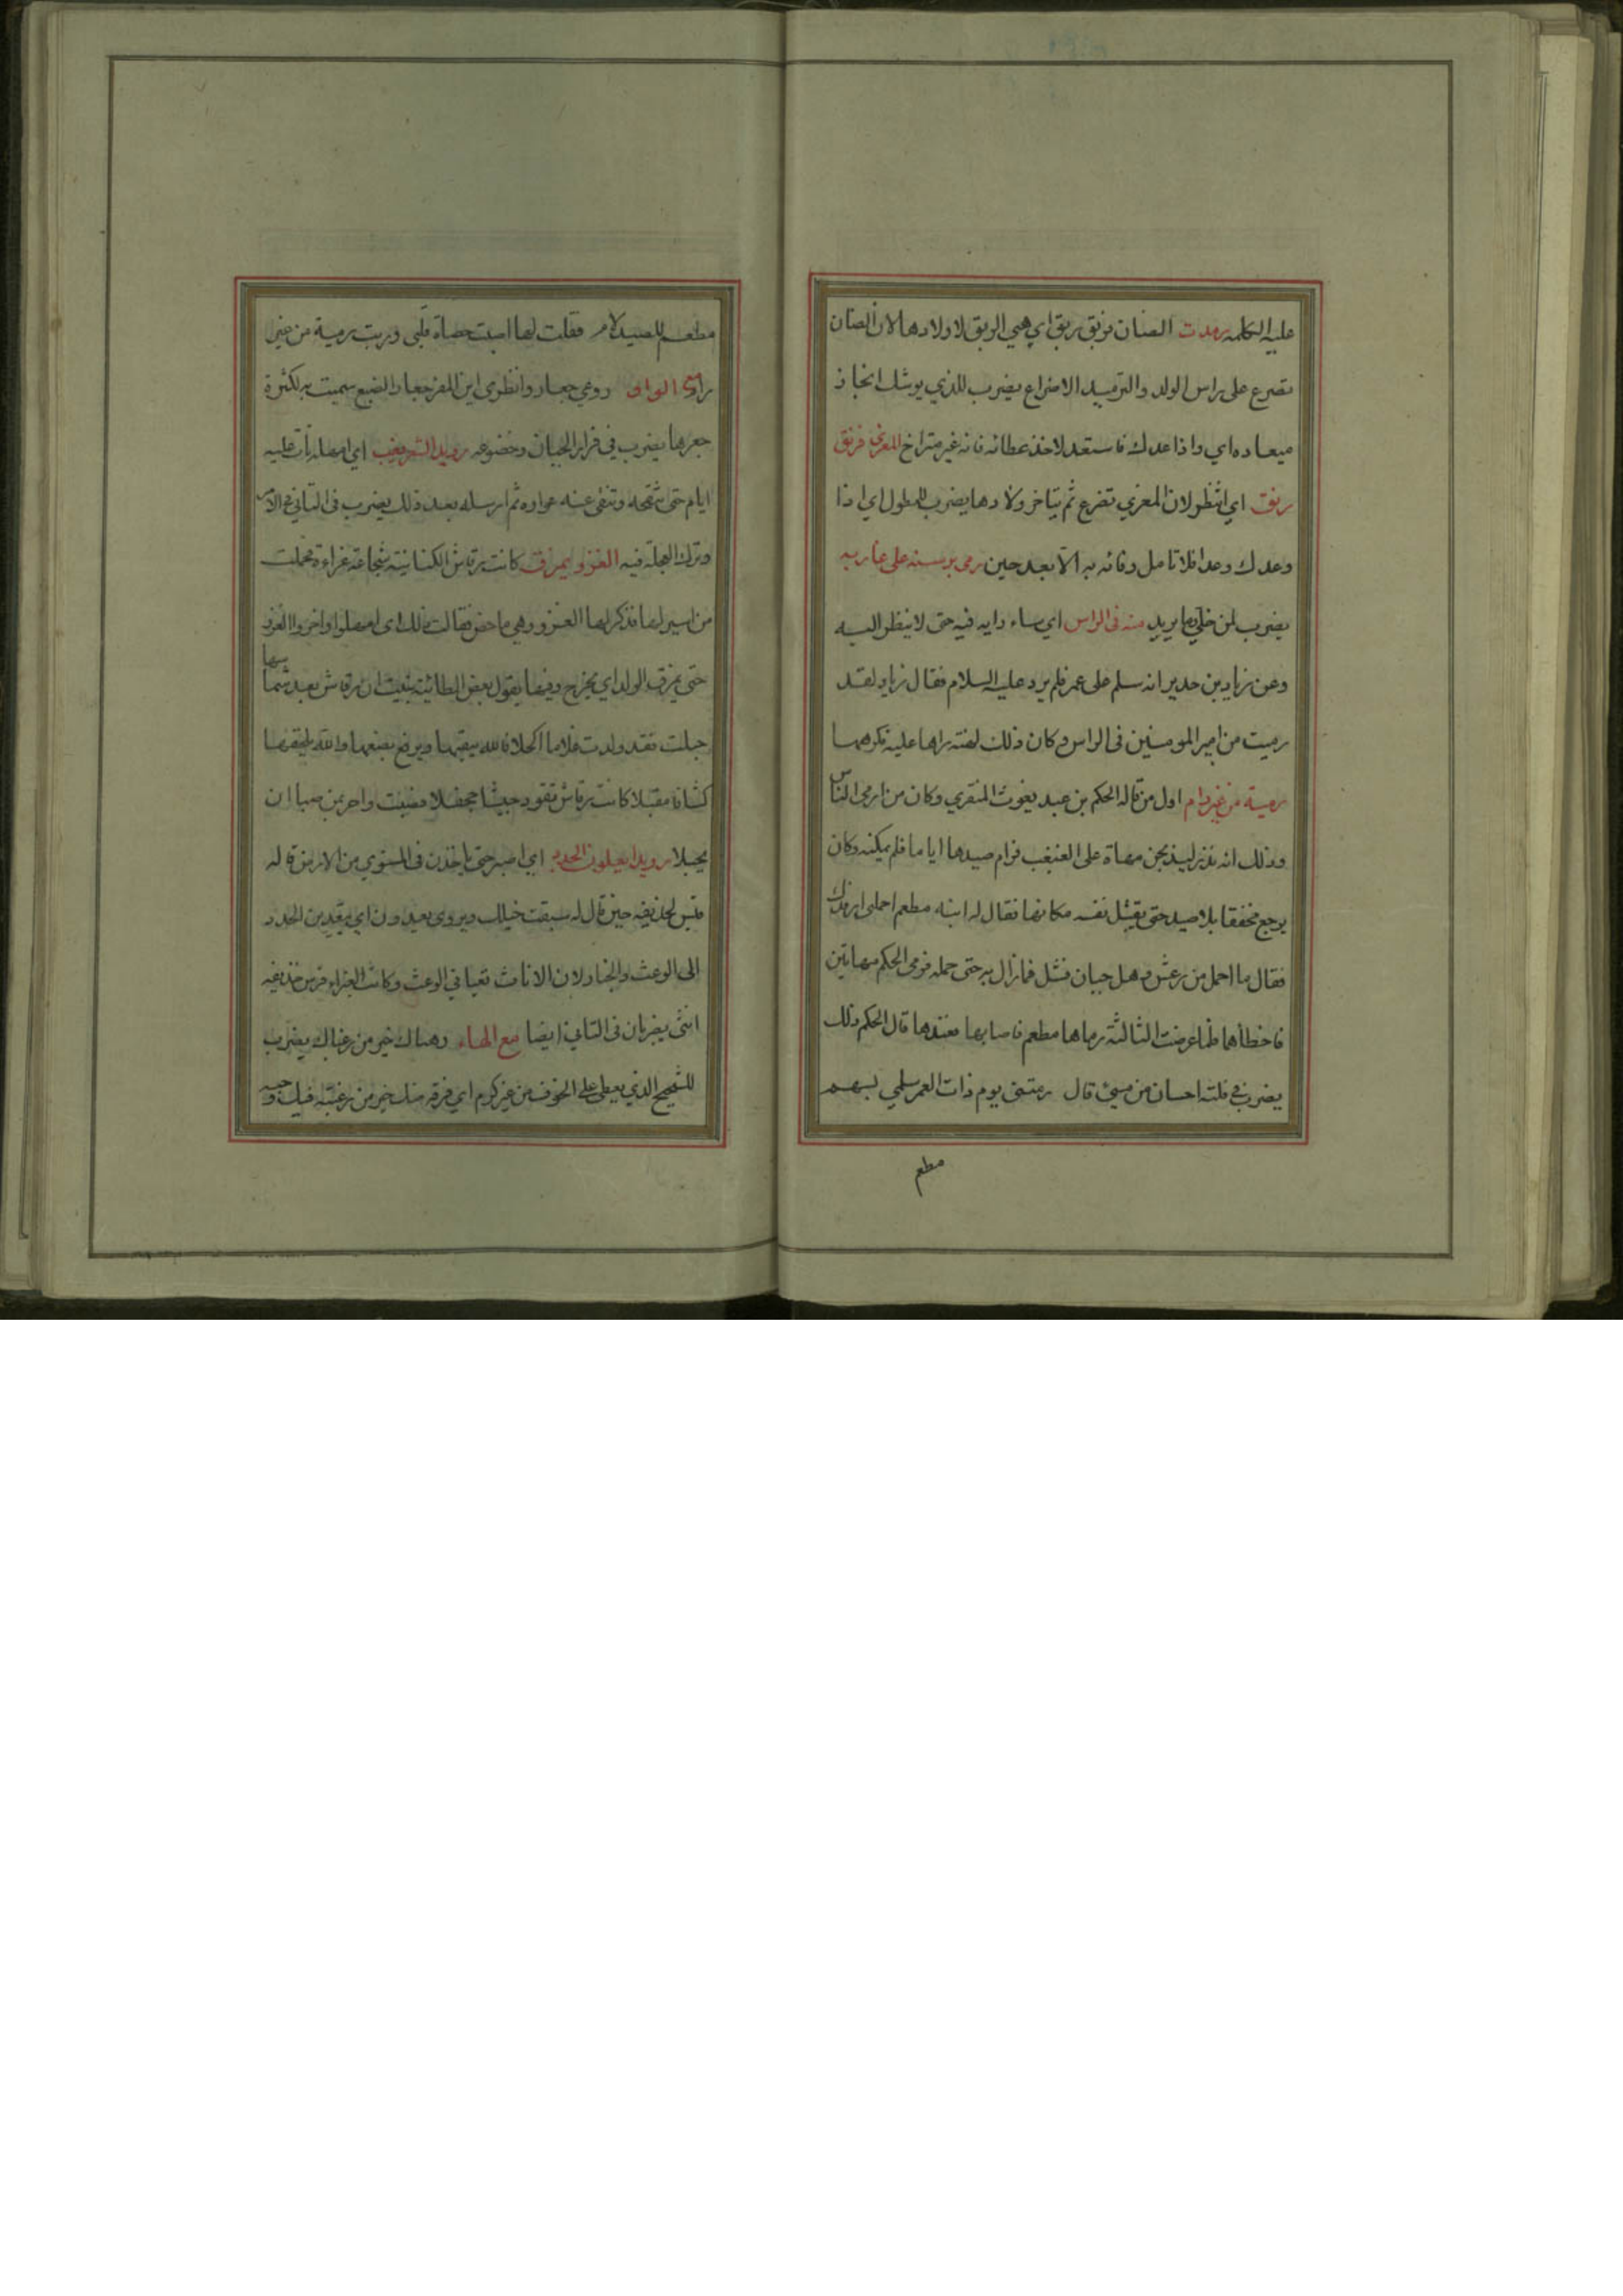 عليه الكلمه رمدت الضان فربق ربق اي هيي الربق لاولادها لان الضان
تضرع على راس الولد والترميد الاضراع يضرب للذي يوشك انجاز
ميعاده اي واذا عدك فاستعد لاخذ عطائه فانه غير متراخ المعزي فرنق
رنق اي انتظر لان المعزي تضرع ثم يتاخر ولادها يضرب للمطول اي اذا
وعدك وعدا فلا تامل وفائه به الا بعد حين رمى برسنه على غاربه
يضرب لمن خلي وما يريد منه في الراس اي ساء رايه فيه حتى لا ينظر اليه
وعن زياد بن حدير انه سلم على عمر فلم يرد عليه السلام فقال زياد لقد
رميت من امير المومنين في الراس وكان ذلك لهنة راها عليه فكرهها
رمية من غير رام اول من قاله الحكم بن عبد يغوث المنقري وكان من ارمى الناس
وذلك انه نذر ليذبحن مهاة على الغبغب فرام صيدها اياما فلم يمكنه وكان
يرجع مخفقا بلا صيد حتى يقتل نفسه مكانها فقال له ابنه مطعم احملني ارفدك
فقال ما احمل من رعش وهل جبان فشل فمازال به حتى حمله فرمى الحكم مهاتين
فاخطاهما فلما عرضت الثالثة رماها مطعم فاصابها فعندها قال الحكم ذلك
يضرب في فلتة احسان من مسيئ قال رمتني يوم ذات الغمر سلمي بسهم
مطعم
مطعم للصيد لام فقلت لها اصبت حصاة قلبي وربت رمية من غير
رامي الواو روغي جعار وانظري اين المفر جعار الضبع سميت به لكثرة
جعرها يضرب في فرار الجبان وخضوعه رويد الشعر يغب اي امهله تات عليه
ايام حتى تنقحه وتنفي عنه عواره ثم ارسله بعد ذلك يضرب في التاني في الامر
وترك العجلة فيه الغزو يمرق كانت رقاش الكنانية شجاعة غزاءة فحملت
من اسير لها فذكر لها الغزو وهي ماخض فقالت ذلك اي امهلوا واخروا الغزو
حتى يمرق الولد اي يخرج وفيها يقول بعض الطائية نبئت ان رقاش بعد شماسها
حبلت فقد ولدت غلاما اكحلا فالله يبقيها ويرفع بضعها والله يلحقها
كشافا مقبلا كانت رقاش تقود جيشا جحفلا فصبت واحر بمن صبا ان
يحبلا رويدا يعلون الجدد اي اصبر حتى ياخذن في المستوي من الارض قاله
قيس لحذيفة حين قال له سبقت خيلك ويروى يعدون اي يتعدين الجدد
الى الوعث والخبار لان الاناث تعيا في الوعث وكانت الغبراء فرس حذيفه
انثى يضربان في التاني ايضا مع الهاء رهباك خير من رغباك يضرب
للشحيح الذي يعطي على الخوف من غير كرم اي فرقه منك خير من رغبته فيك وحبه